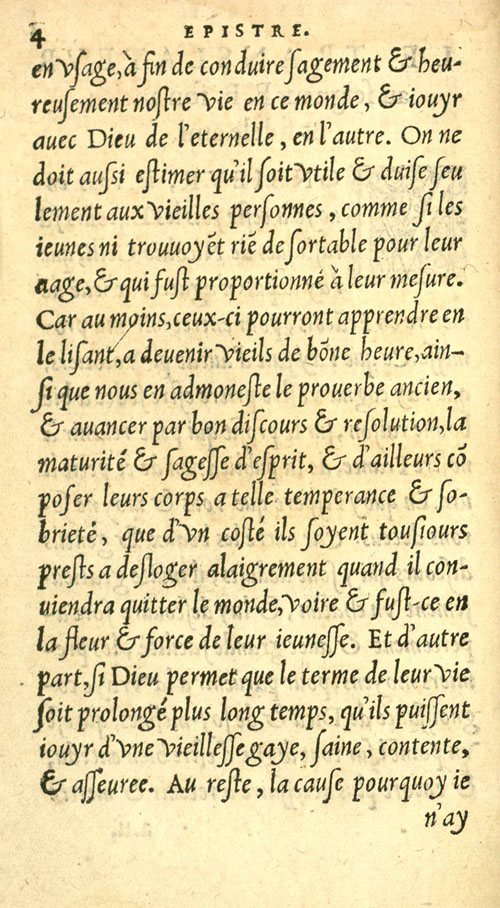 4 EPISTRE.
en vſage, à fin de conduire ſagement & heu-
reuſement noſtre vie en ce monde, & iouyr
auec Dieu de l'eternelle, en l'autre. On ne
doit auſsi eſtimer qu'il ſoit vtile & duiſe ſeu
lement aux vieilles perſonnes, comme ſi les
ieunes ni trouuoyẽt riẽ de ſortable pour leur
aage, & qui fuſt proportionné à leur meſure.
Car au moins, ceux-ci pourront apprendre en
le liſant, a deuenir vieils de bõne heure, ain-
ſi que nous en admoneſte le prouerbe ancien,
& auancer par bon diſcours & reſolution, la
maturité & ſageſſe d'eſprit, & d'ailleurs cõ
poſer leurs corps a telle temperance & ſo-
brieté, que d'vn coſté ils ſoyent touſiours
preſts a deſloger alaigrement quand il con-
uiendra quitter le monde, voire & fuſt-ce en
la fleur & force de leur ieuneſſe. Et d'autre
part, ſi Dieu permet que le terme de leur vie
ſoit prolongé plus long temps, qu'ils puiſſent
iouyr d'vne vieilleſſe gaye, ſaine, contente,
& aſſeuree. Au reſte, la cauſe pourquoy ie
n'ay